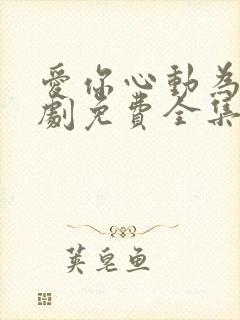 愛你心動為
劇免費全集
荚皂鱼